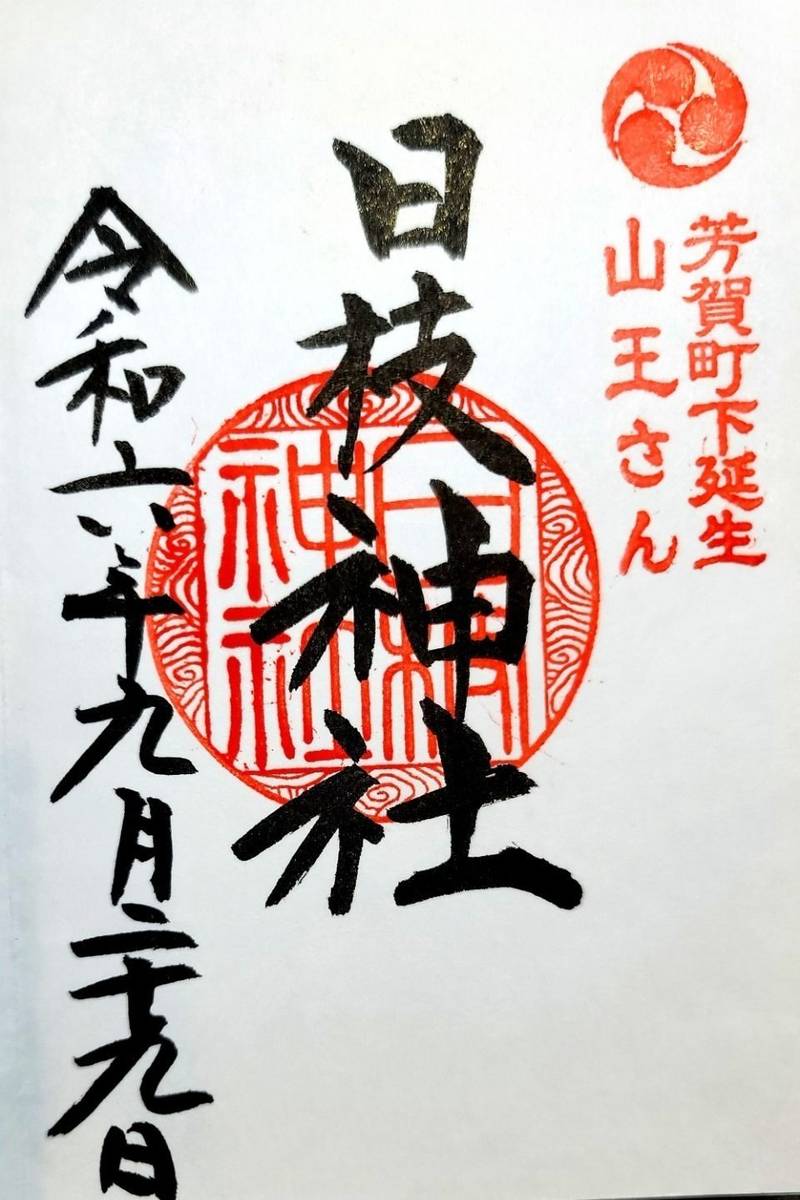 芳賀町下延生
山王さん
日枝神社
日枝神社
令和六年九月二十九日